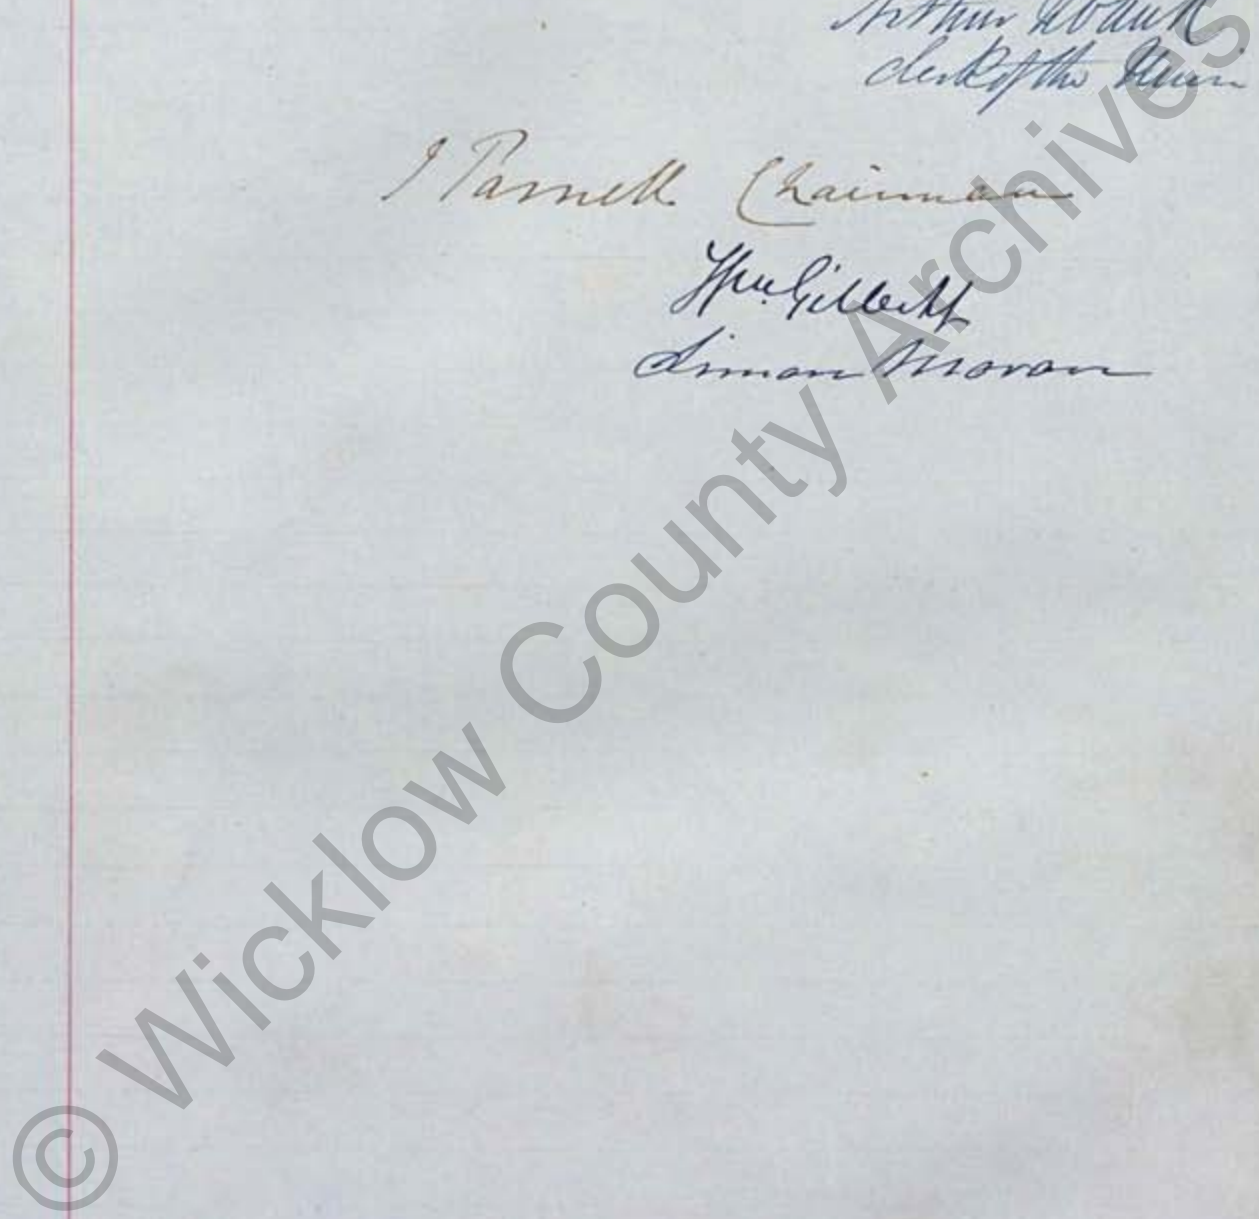 Arthur
Clerk of the Union
J Parnell Chairman
Wm. Gilbert
Simon Moran
© Wicklow County Archives